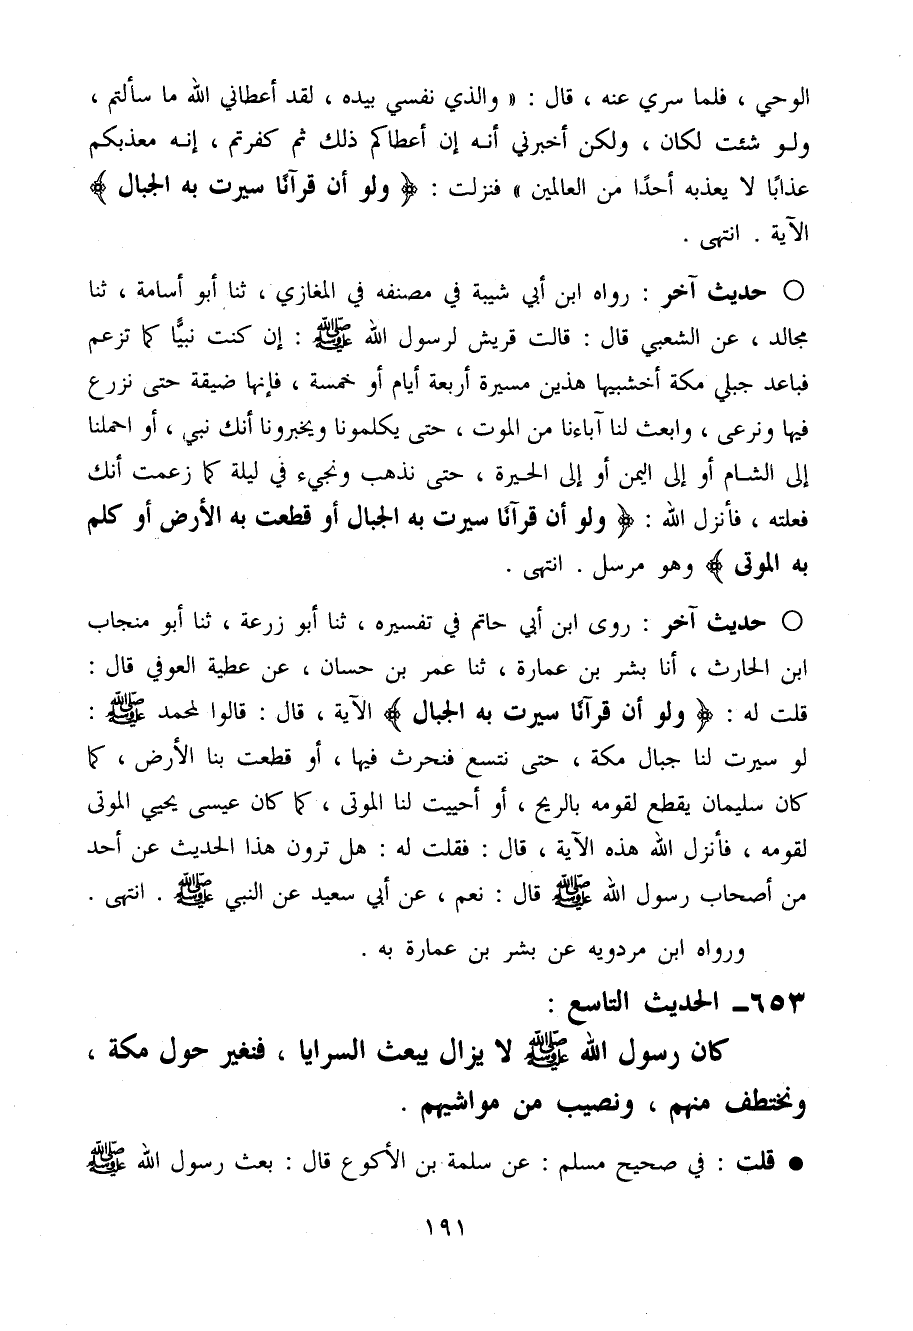 الوحي ، فلما سري عنه ، قال : « والذي نفسي بيده ، لقد أعطاني الله ما سألتم ،
ولـو شئت لكان ، ولكن أخبرني أنـه إن أعطاكم ذلك ثم كفرتم ، إنـه معذبكم
عذابًا لا يعذبه أحدًا من العالمين » فنزلت : ﴿ ولو أن قرآنًا سيرت به الجبال ﴾
الآية . انتهى .
○ حديث آخر : رواه ابن أبي شيبة في مصنفه في المغازي ، ثنا أبو أسامة ، ثنا
مجالد ، عن الشعبي قال : قالت قريش لرسول الله ﷺ : إن كنت نبيًّا كما تزعم
فباعد جبلي مكة أخشبيها هذين مسيرة أربعة أيام أو خمسة ، فإنها ضيقة حتى نزرع
فيها ونرعى ، وابعث لنا آباءنا من الموت ، حتى يكلمونا ويخبرونا أنك نبي ، أو احملنا
إلى الشـام أو إلى اليمن أو إلى الحـيرة ، حتى نذهب ونجيء في ليلة كما زعمت أنك
فعلته ، فأنزل الله : ﴿ ولو أن قرآنًا سيرت به الجبال أو قطعت به الأرض أو كلم
به الموتى ﴾ وهو مرسل . انتهى .
○ حديث آخر : روى ابن أبي حاتم في تفسيره ، ثنا أبو زرعة ، ثنا أبو منجاب
ابن الحارث ، أنا بشر بن عمارة ، ثنا عمر بن حسان ، عن عطية العوفي قال :
قلت له : ﴿ ولو أن قرآنًا سيرت به الجبال ﴾ الآية ، قال : قالوا لمحمد ﷺ :
لو سيرت لنا جبال مكة ، حتى نتسع فنحرث فيها ، أو قطعت بنا الأرض ، كما
كان سليمان يقطع لقومه بالريح ، أو أحييت لنا الموتى ، كما كان عيسى يحيي الموتى
لقومه ، فأنزل الله هذه الآية ، قال : فقلت له : هل ترون هذا الحديث عن أحد
من أصحاب رسول الله ﷺ قال : نعم ، عن أبي سعيد عن النبي ﷺ . انتهى .
ورواه ابن مردويه عن بشر بن عمارة به .
٦٥٣ـ الحديث التاسع :
كان رسول الله ﷺ لا يزال يبعث السرايا ، فنغير حول مكة ،
ونختطف منهم ، ونصيب من مواشيهم .
● قلت : في صحيح مسلم : عن سلمة بن الأكوع قال : بعث رسول الله ﷺ
١٩١